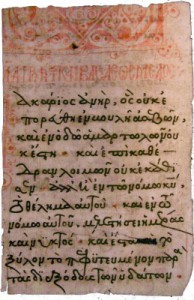 ακάριος ἀνὴρ, ὃς οὐκ ἐ
πορεύθη ἐν βουλῆ ἀσεβῶν
καὶ ἐν ὁδῶ ἁμαρτωλῶν οὐ
κ ἔστη· καὶ ἐπὶ καθέ
δρα λοιμῶν οὐκ ἐκάθι
σεν· ἀλλ' ἢ ἐν τῶ νόμω κυ
τὸ θέλημα αὐτοῦ· καὶ ἐν τῶ
νόμω αὐτοῦ μελετήσει ἡμέρας
καὶ νυκτός· καὶ ἔσται ὡς τὸ
ξύλον τὸ πεφυτευμένον παρὰ
τὰς διεξόδους τῶν ὑδάτων